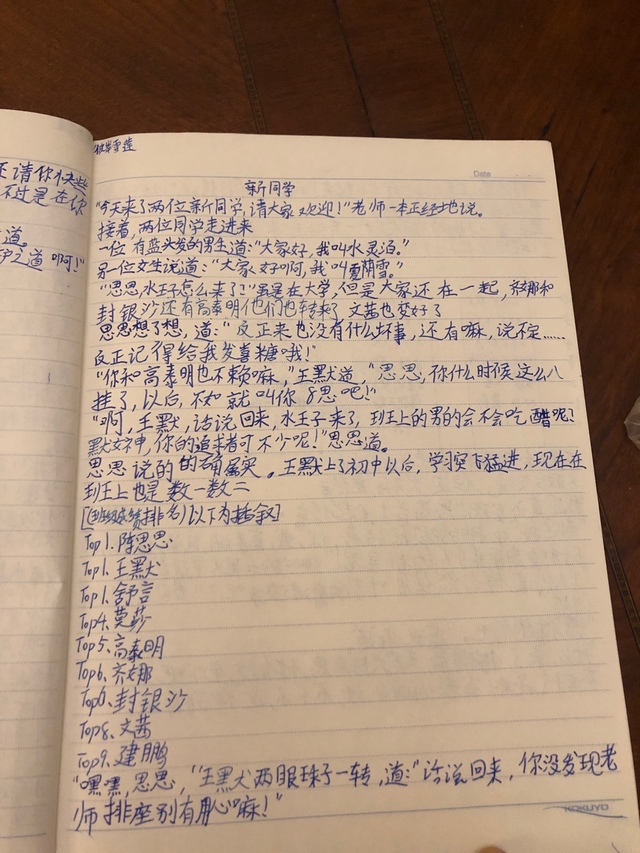 王请你快些
不过是在你
道。
之道啊!"
雪莲
Date
新同学
"今天来了两位新同学,请大家欢迎!"老师一本正经地说。
接着,两位同学走进来
一位有蓝头发的男生道:"大家好,我叫水灵泊。"
另一位女生说道:"大家好啊,我叫夏荫雪。"
"思思,水王子怎么来了?"虽是在大学,但是大家还在一起,齐娜和
封银沙还有高泰明他们也转来了文茜也变好了
思思想了想,道:"反正来也没有什么坏事,还有嘛,说不定……
反正记得给我发喜糖哦!"
"你和高泰明也不赖嘛,"王默道,"思思,你什么时候这么八
挂了,以后,不如就叫你8思吧!"
"啊,王默,话说回来,水王子来了,班上的男的会不会吃醋呢?
默女神,你的追求者可不少呢!"思思道。
思思说的的确属实。王默上了初中以后,学习突飞猛进,现在在
班上也是数一数二
[(班级成绩排名)以下为插叙]
Top1.陈思思
Top1.王默
Top1.舒言
Top4.莫莎
Top5.高泰明
Top6.齐娜
Top6.封银沙
Top8.文茜
Top9.建鹏
"嘿嘿,思思,"王默两眼珠子一转,道:"话说回来,你没发现老
师排座别有用心嘛!"
KOKUYO